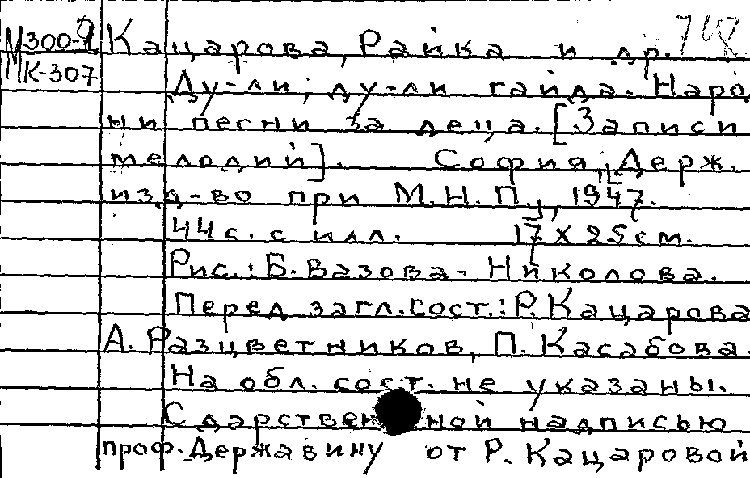 М300-9 Кацарова, Райка и др. 718
МК-307 Ду-ли, ду-ли гайда. Наро
ни песни за деца. [Записи
мелодий]. София, Держ.
изд-во при М.Н.П., 1947.
44 с. с илл. 17 x 25 см.
Рис.: Б. Вазова-Николова.
Перед загл. сост.: Р. Кацарова
А. Разцветников, П. Касабова.
На обл. сост. не указаны.
С дарственной надписью
проф. Державину от Р. Кацаровой